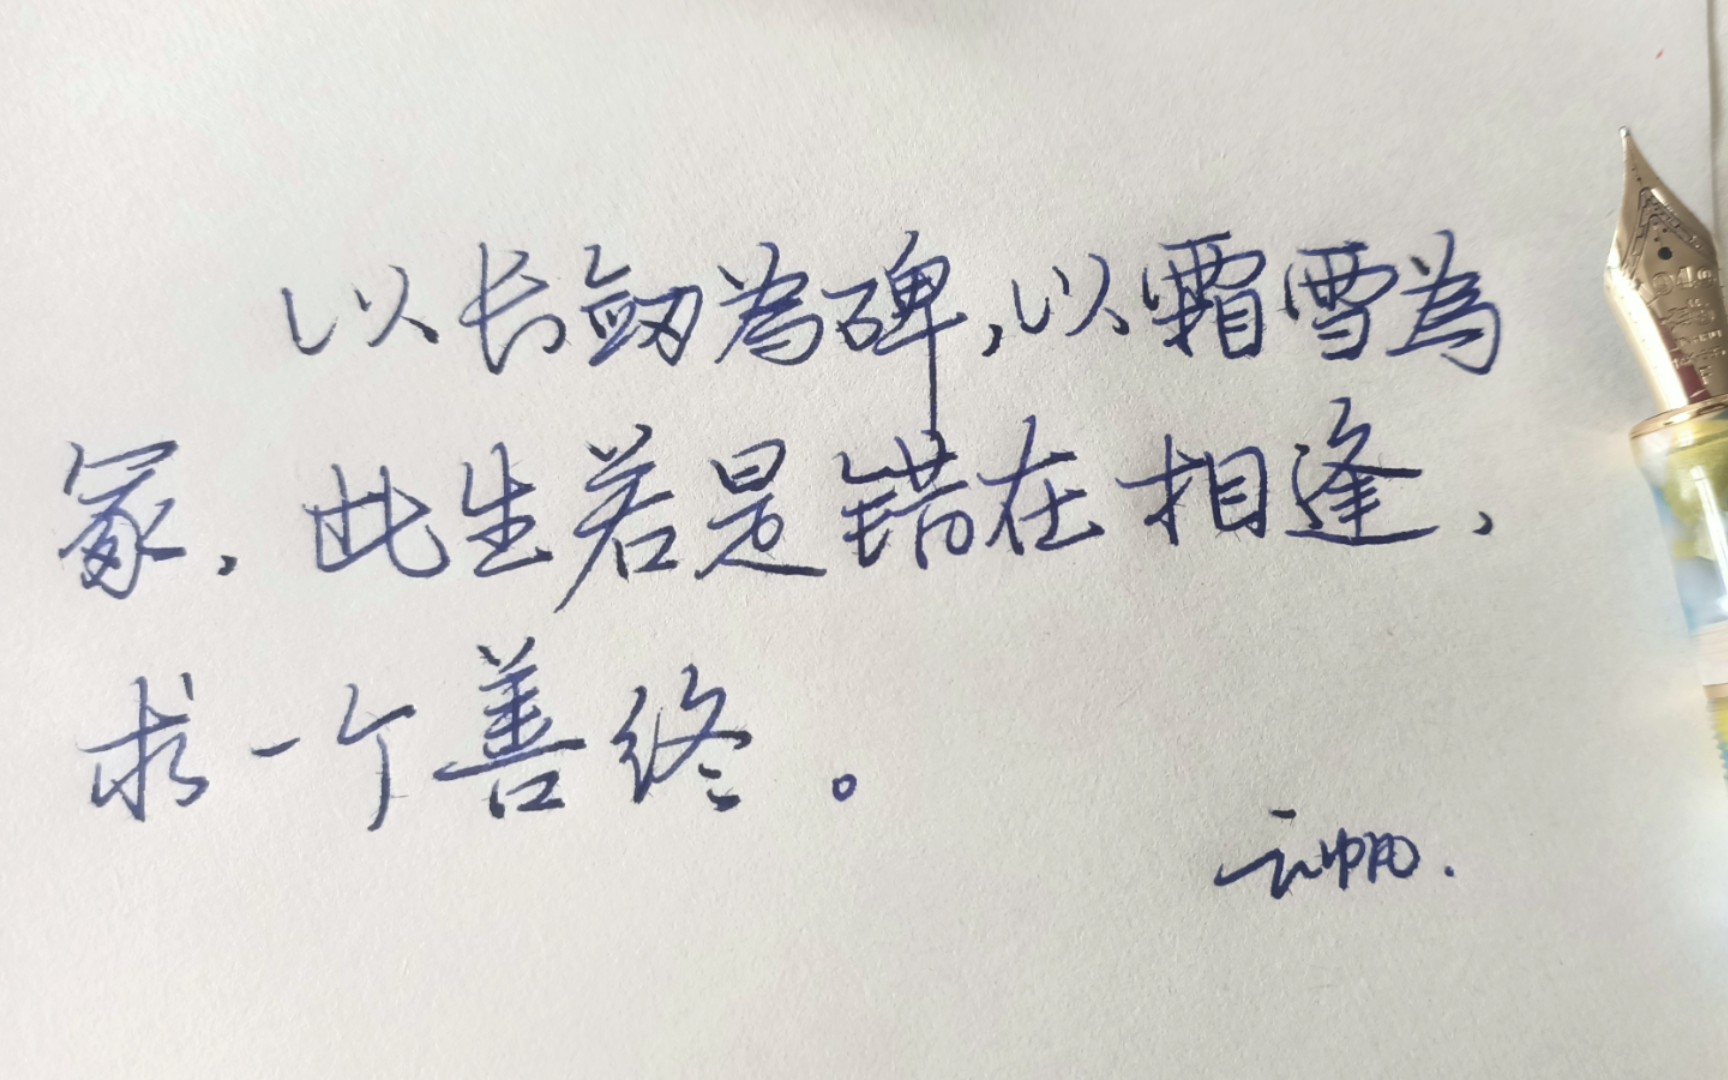 以长劒為碑,以霜雪為
冢,此生若是错在相逢,
求一个善终。
云帆.